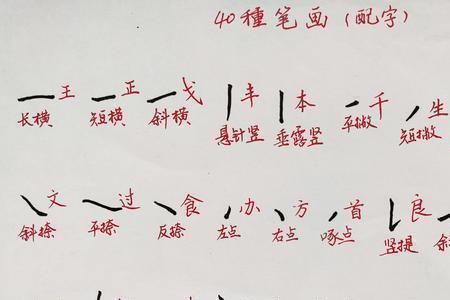 40種笔画（配字）
王 正 戈 丰 本 千 生
长横 短横 斜横 悬针竖 垂露竖 平撇 短撇
文 过 食 办 方 首 良
斜捺 平捺 反捺 左点 右点 啄点 竖提